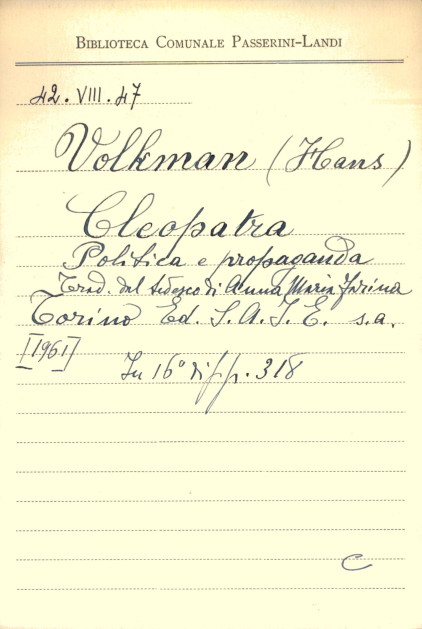 BIBLIOTECA COMUNALE PASSERINI-LANDI
42. VIII. 47
Volkman (Hans)
Cleopatra
Politica e propaganda
Trad. dal tedesco di Anna Maria Farina
Torino Ed. S.A.I.E. s.a.
[1961]
In 16° di pp. 318
C